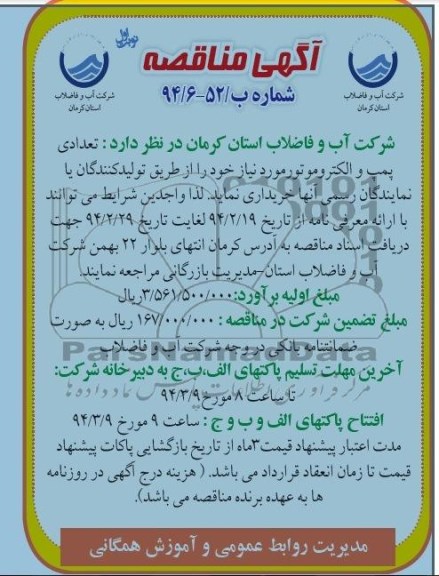 نوبت اول
آگهی مناقصه
شماره ب/۵۲-۹۴/۶
شرکت آب و فاضلاب
استان کرمان
شرکت آب و فاضلاب
استان کرمان
شرکت آب و فاضلاب استان کرمان در نظر دارد : تعدادی
پمپ و الکتروموتورمورد نیاز خود را از طریق تولیدکنندگان یا
نمایندگان رسمی آنها خریداری نماید. لذا واجدین شرایط می توانند
با ارائه معرفی نامه از تاریخ ۹۴/۲/۱۹ لغایت تاریخ ۹۴/۲/۲۹ جهت
دریافت اسناد مناقصه به آدرس کرمان انتهای بلوار ۲۲ بهمن شرکت
آب و فاضلاب استان-مدیریت بازرگانی مراجعه نمایند.
مبلغ اولیه برآورد:۳/۵۶۱/۵۰۰/۰۰۰ریال
مبلغ تضمین شرکت در مناقصه : ۱۶۷/۰۰۰/۰۰۰ ریال به صورت
ضمانتنامه بانکی در وجه شرکت آب و فاضلاب
ParsNamadData
آخرین مهلت تسلیم پاکتهای الف،ب،ج به دبیرخانه شرکت:
تا ساعت ۸ مورخ ۹۴/۳/۹
افتتاح پاکتهای الف و ب و ج : ساعت ۹ مورخ ۹۴/۳/۹
مدت اعتبار پیشنهاد قیمت۳ماه از تاریخ بازگشایی پاکات پیشنهاد
قیمت تا زمان انعقاد قرارداد می باشد. ( هزینه درج آگهی در روزنامه
ها به عهده برنده مناقصه می باشد).
مدیریت روابط عمومی و آموزش همگانی